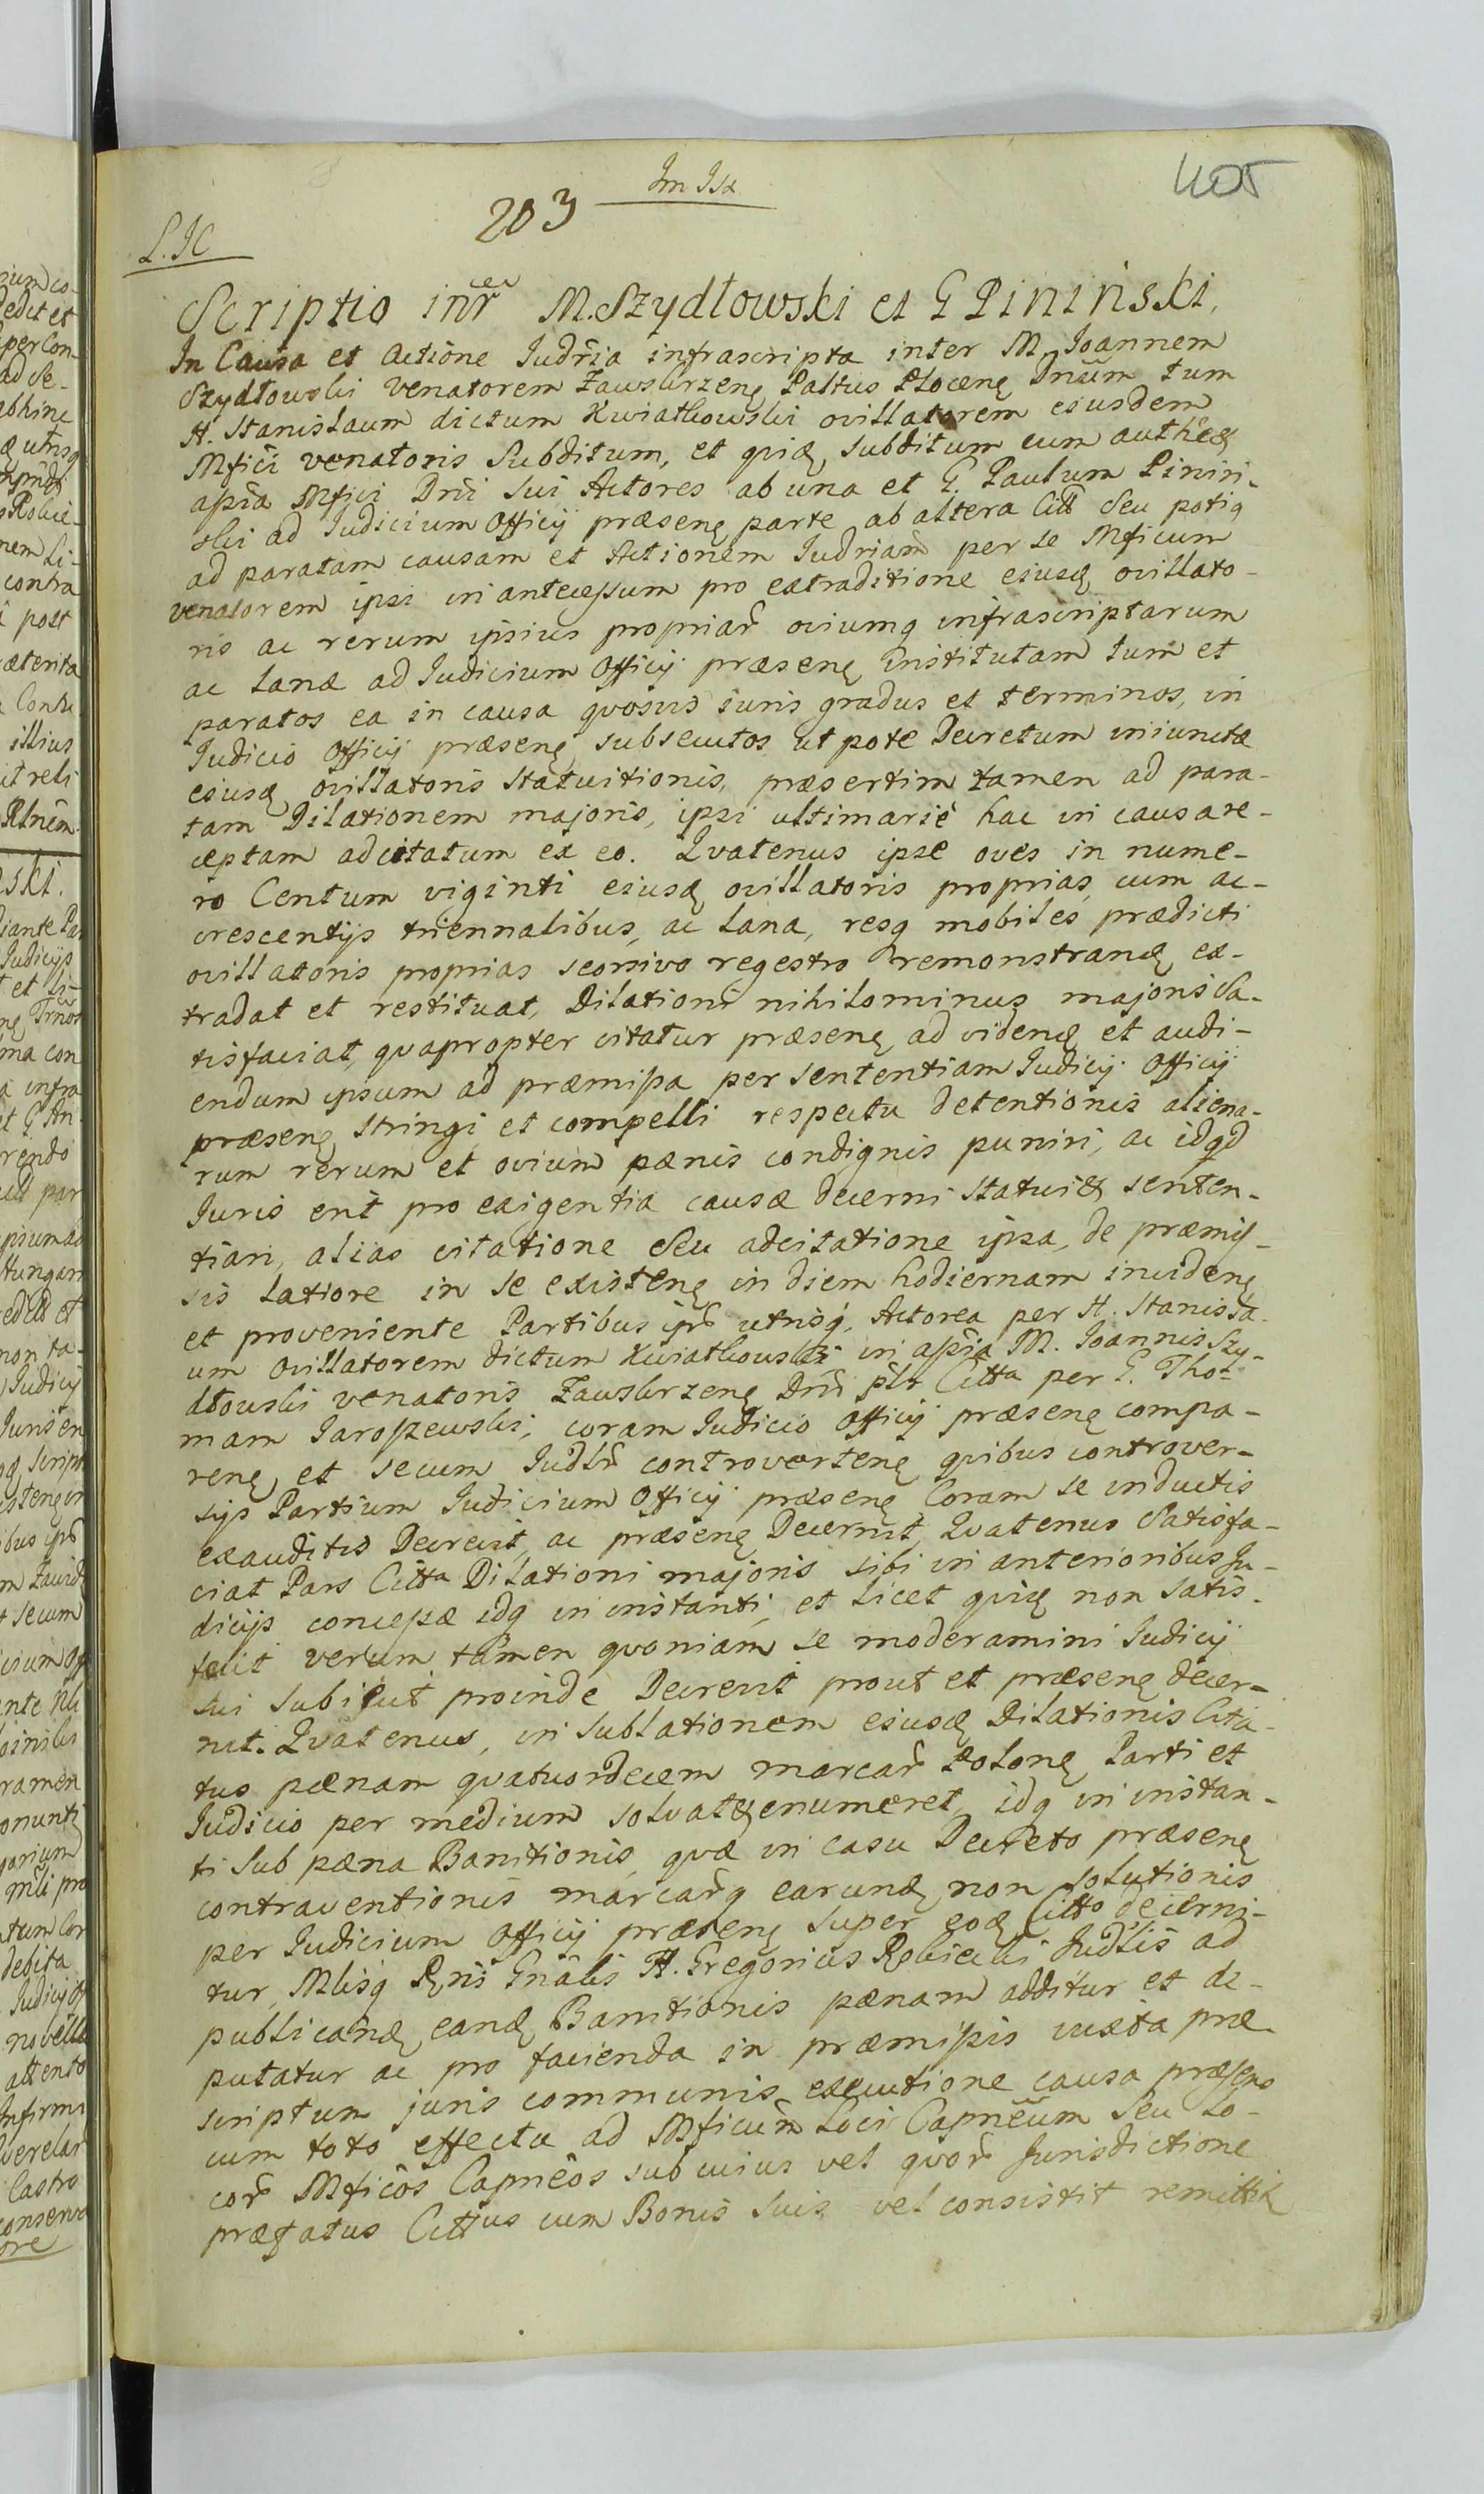 405
203
L. JC
Scriptio intr M. Szydłowski et G Pininski,
In Causa et Actione Iudria infrascripta inter M Joannem
Szydłowski venatorem Zawskrzenę Paltus Plocenę Dnum tum
H. Stanislaum dictum Kwiatkowski ovillatorem eiusdem
Mfici venatoris Subditum, et qvię, subditum cum authę
assia Mfici Dni sui Actores ab una et G. Paulum Pinin-
ski ad Judicium Officij præsenę parte ab altera Citt Seu potiq
ad paratam causam et Actionem Iudriam per se Mficum
venatorem ipsi in antecessum pro extraditione eiusdę ovillato-
ris ac rerum ipsius propriar̃ oviumq infrascriptarum
ac Lanæ ad Judicium Officij præsenę Institutam tum et
paratos ea in causa qvosvis iuris gradus et terminos, in
Judicio Officij præsenę subsecutos, ut pote Decretum iniunctæ
eiusdę ovillatoris statuitionis, præsertim tamen ad para-
tam Dilationem majoris, ipsi ultimarie hac in causa re-
ceptam adcitatum ex eo. Qvatenus ipse oves in nume-
ro Centum viginti eiusdę ovillatoris proprias, cum ac-
crescentijs triennalibus, ac Lana, resq mobiles prædicti
ovillatoris proprias seorsivo regestro remonstrandę, ex-
tradat et restituat, Dilationi nihilominus majoris Sa-
tisfaciat, qvapropter citatur præsenę ad videndę et audi-
endum ipsum ad præmissa per sententiam Judicij Officij
præsenę, stringi et compelli respectu detentionis aliena-
rum rerum et ovium pænis condignis puniri, ac idqd
Juris erit pro exigentia causæ decerni statui& senten-
tiari, alias citatione Seu adcitatione ipsa, de præmis-
sis latiore in se existenę in diem hodiernam incidenę
et proveniente Partibus ipis utrisq, Actorea per H. Stanisła-
um ovillatorem dictum Kwiatkowski in assia M. Joannis Szy-
dłowski venatoris Zawskrzenę Dni plr Citta per G. Tho-
mam Jaroszewski, coram Judicio Officij præsenę compa-
renę, et secum Iudlr controvertenę, qvibus controver-
sijs Partium Judicium Officij præsenę Coram se inductis
exauditis Decrevit, ac præsenę Decernit, Qvatenus Satisfa-
ciat Pars Citta Dilationi majoris sibi in anterioribus Ju-
dicijs concessæ idq in instanti, et licet qvię non satis-
fecit verum tamen qvoniam se moderamini Judicij
sui subiecit proinde Decrevit prout et præsenę decer-
nit. Qvatenus, in Sublationem eiusdę Dilationis Cita-
tus pænam qvatuordecem marcar̃ Polonę Parti et
Judicio per medium solvat& enumeret, idq in instan-
ti sub pæna Bannitionis, qvæ in casu Decreto præsenę
contraventionis marcar̃q earundę, non solutionis
per Judicium Officij præsenę super eodę Citto decerni-
tur, Mlisq Rni Gnalis H. Gregorius Robiecki Judlis ad
publicandę, eandę Bannitionis pænam additur et de-
putatur ac pro facienda in præmissis iuxta præ-
scriptum juris communis executione causa præsens
cum toto effectu ad Mficum Loci Capneum Seu Lo-
cor̃ Mficos Capneos sub cuius vel qvor̃ Jurisdictione
præfatus Cittus cum Bonis suis vel consistit remittit